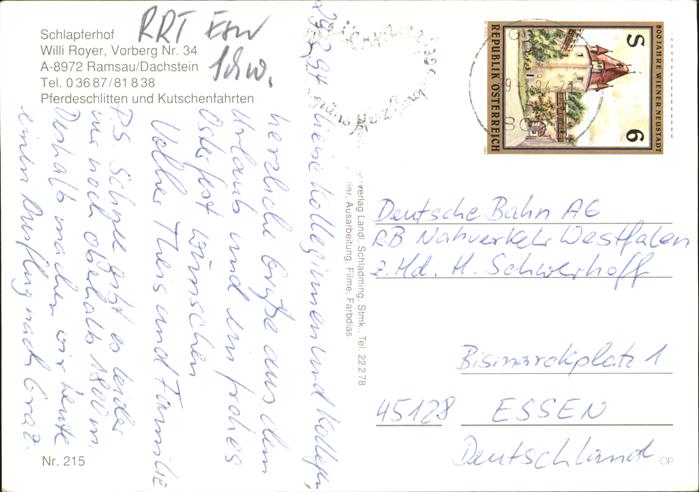 Schlapferhof
Willi Royer, Vorberg Nr. 34
A-8972 Ramsau/Dachstein
Tel. 0 36 87/81 8 38
Pferdeschlitten und Kutschenfahrten
RRT
29.3.94
Liebe Kolleginnen und Kollegen,
herzliche Grüße aus dem
Urlaub und ein frohes
Osterfest wünschen
Volker Theis und Familie
P.S. Schnee gibt es leider
nur noch oberhalb 1800 m.
Deshalb machen wir heute
einen Ausflug nach Graz.
Nr. 215
verlag Landl, Schladming, Stmk., Tel. 22 2 78
Ausarbeitung, Filme, Farbdias
REPUBLIK ÖSTERREICH
S 6
800 JAHRE WIENER NEUSTADT
Deutsche Bahn AG
RB Nahverkehr Westfalen
z.Hd. H. Schwerhoff
Bismarckplatz 1
45128 ESSEN
Deutschland
OP